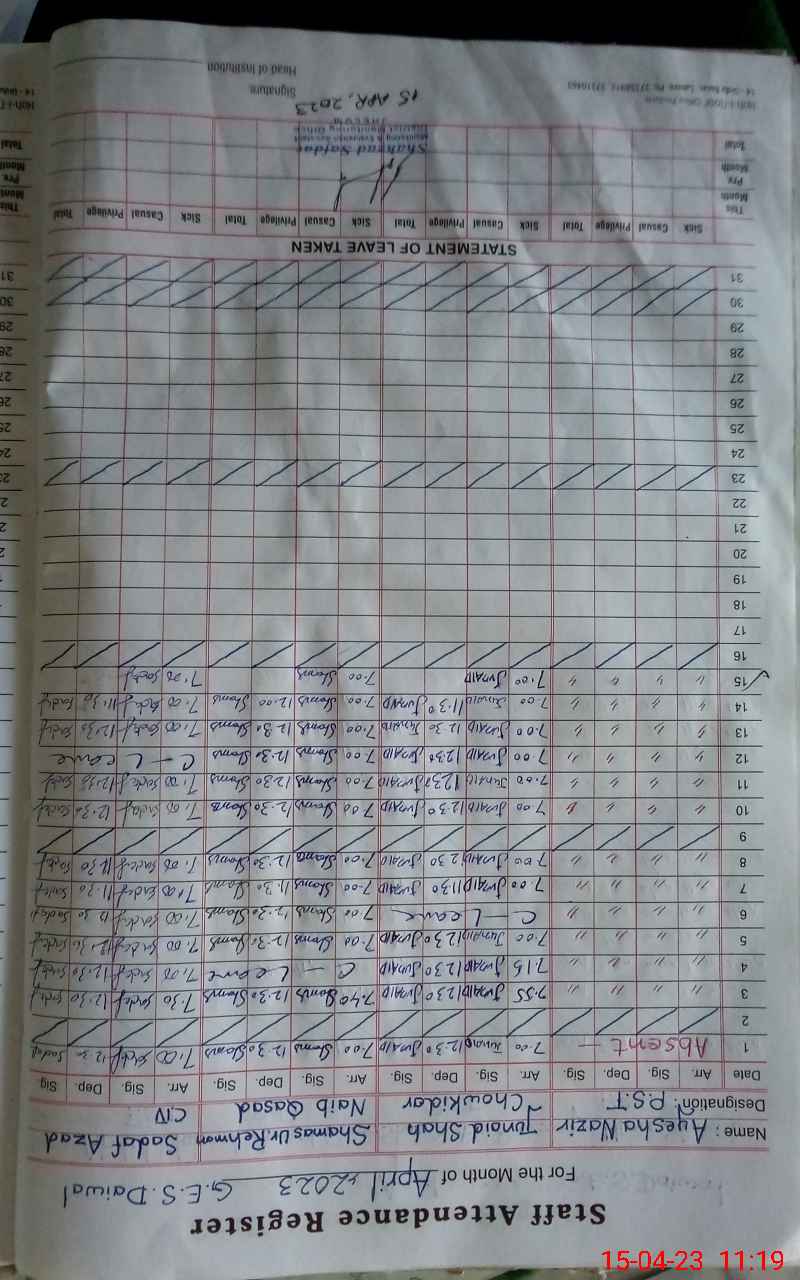 Staff Attendance Register
For the Month of April, 2023 G.E.S. Daiwal
Name: Ayesha Nazir Junaid Shah Shamas Ur. Rehman Sadaf Azad
Designation: P.S.T Chowkidar Naib Qasad C.IV
Date Arr. Sig. Dep. Sig. Arr. Sig. Dep. Sig. Arr. Sig. Dep. Sig. Arr. Sig. Dep. Sig.
1 Absent — 7:00 Junaid 12:30 JUNAID 7:00 Shams 12:30 Shams 7:00 Sadaf 12:30 Sadaf
2
3 " " " " 7:55 JUNAID 12:30 JUNAID 7:40 Shams 12:30 Shams 7:30 Sadaf 12:30 Sadaf
4 " " " " 7:15 JUNAID 12:30 JUNAID C — Leave 7:00 Sadaf 12:30 Sadaf
5 " " " " 7:00 JUNAID 12:30 JUNAID 7:00 Shams 12:30 Shams 7:00 Sadaf 12:30 Sadaf
6 " " " " C — Leave 7:00 Shams 12:30 Shams 7:00 Sadaf 12:30 Sadaf
7 " " " " 7:00 JUNAID 11:30 JUNAID 7:00 Shams 11:30 Shams 7:00 Sadaf 11:30 Sadaf
8 " " " " 7:00 JUNAID 12:30 JUNAID 7:00 Shams 12:30 Shams 7:00 Sadaf 11:30 Sadaf
9
10 " " " " 7:00 JUNAID 12:30 JUNAID 7:00 Shams 12:30 Shams 7:00 Sadaf 12:30 Sadaf
11 " " " " 7:00 JUNAID 12:30 JUNAID 7:00 Shams 12:30 Shams 7:00 Sadaf 12:30 Sadaf
12 " " " " 7:00 JUNAID 12:30 JUNAID 7:00 Shams 12:30 Shams C — Leave
13 " " " " 7:00 JUNAID 12:30 JUNAID 7:00 Shams 12:30 Shams 7:00 Sadaf 12:30 Sadaf
14 " " " " 7:00 JUNAID 11:30 JUNAID 7:00 Shams 12:00 Shams 7:00 Sadaf 11:30 Sadaf
15 " " " " 7:00 JUNAID 7:00 Shams 7:00 Sadaf
16
17
18
19
20
21
22
23
24
25
26
27
28
29
30
31
STATEMENT OF LEAVE TAKEN
Sick Casual Privilege Total Sick Casual Privilege Total Sick Casual Privilege Total Sick Casual Privilege Total
This Month
Pre Month
Total
Shahzad Safdar
Monitoring & Evaluation Assistant
District Monitoring Office
15 APR, 2023
Signature
Head of Institution
15-04-23 11:19